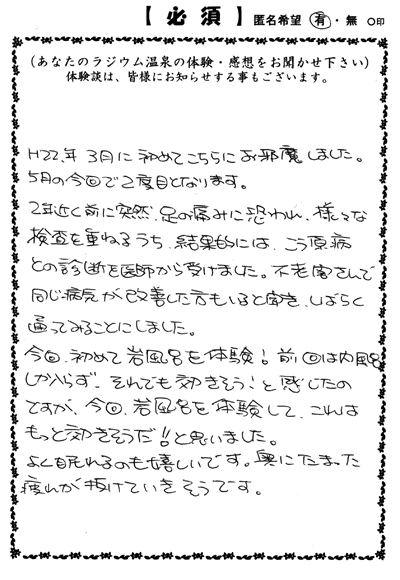 【必須】 匿名希望 有・無 〇印
(あなたのラジウム温泉の体験・感想をお聞かせ下さい)
体験談は、皆様にお知らせする事もございます。
H22.年 3月に初めてこちらにお邪魔しました。
5月の今回で2度目となります。
2年近く前に突然、足の痛みに恐われ、様々な
検査を重ねるうち、結果的には、こう原病
との診断を医師から受けました。不老閣さんで
同じ病気が改善した方もいると聞き、しばらく
通ってみることにしました。
今回、初めて岩風呂を体験!前回は内風呂
しか入らず、それでも効きそう!と感じたの
ですが、今回、岩風呂を体験して、これは
もっと効きそうだ!!と思いました。
よく眠れるのも嬉しいです。奥にたまった
疲れが抜けていきそうです。